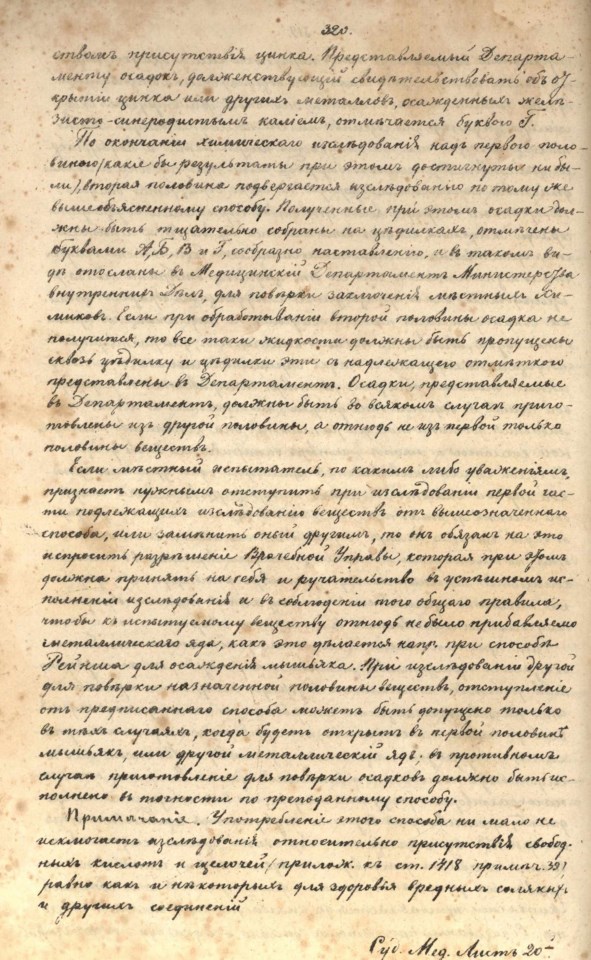 320.
ствомъ присутствія цинка. Представляемый Департа-
менту осадокъ, долженствующій свидѣтельствовать объ от-
крытіи цинка или другихъ металловъ, осажденныхъ желѣ-
зисто-синеродистымъ каліемъ, отмѣчается буквою Г.
По окончаніи химическаго изслѣдованія надъ первого поло-
виною (какіе бы результаты при этомъ достигнуты ни бы-
ли), вторая половина подвергается изслѣдованію по тому же
вышеобъясненному способу. Полученные при этомъ осадки дол-
жны быть тщательно собраны на цѣдилкахъ, отмѣчены
буквами А, Б, В и Г, сообразно наставленію, и въ такомъ ви-
дѣ отосланы въ Медицинскій Департаментъ Министерства
внутреннихъ Дѣлъ, для повѣрки заключенія мѣстныхъ Хи-
миковъ. Если при обработываніи второй половины осадка не
получится, то все таки жидкости должны быть пропущены
сквозь цѣдилку и цѣдилки эти съ надлежащею отмѣткою
представлены въ Департаментъ. Осадки, представляемые
въ Департаментъ, должны быть во всякомъ случаѣ приго-
товлены изъ другой половины, а отнюдь не изъ первой только
половины веществъ.
Если мѣстный испытатель, по какимъ либо уваженіямъ,
признаетъ нужнымъ отступить при изслѣдованіи первой час-
ти подлежащихъ изслѣдованію веществъ отъ вышеозначеннаго
способа, или замѣнить оный другимъ, то онъ обязанъ на это
испросить разрѣшеніе Врачебной Управы, которая при этомъ
должна принять на себя и ручательство въ успѣшномъ ис-
полненіи изслѣдованія и въ соблюденіи того общаго правила,
чтобы къ испытуемому веществу отнюдь не было прибавляемо
металлическаго яда, какъ это дѣлается напр. при способѣ
Рейнша для осажденія мышьяка. При изслѣдованіи другой
для повѣрки назначенной половины веществъ, отступленіе
отъ предписаннаго способа можетъ быть допущено только
въ тѣхъ случаяхъ, когда будетъ открытъ въ первой половинѣ
мышьякъ, или другой металлическій ядъ. въ противномъ
случаѣ приготовленіе для повѣрки осадковъ должно быть ис-
полнено въ точности по преподанному способу.
Примѣчаніе. Употребленіе этого способа ни мало не
исключаетъ изслѣдованія относительно присутствія свобод-
ныхъ кислотъ и щелочей (прилож. къ ст. 1418 примѣч. 33)
равно какъ и нѣкоторыхъ для здоровья вредныхъ соляныхъ
и другихъ соединеній
Суд. Мед. Листъ 20-й